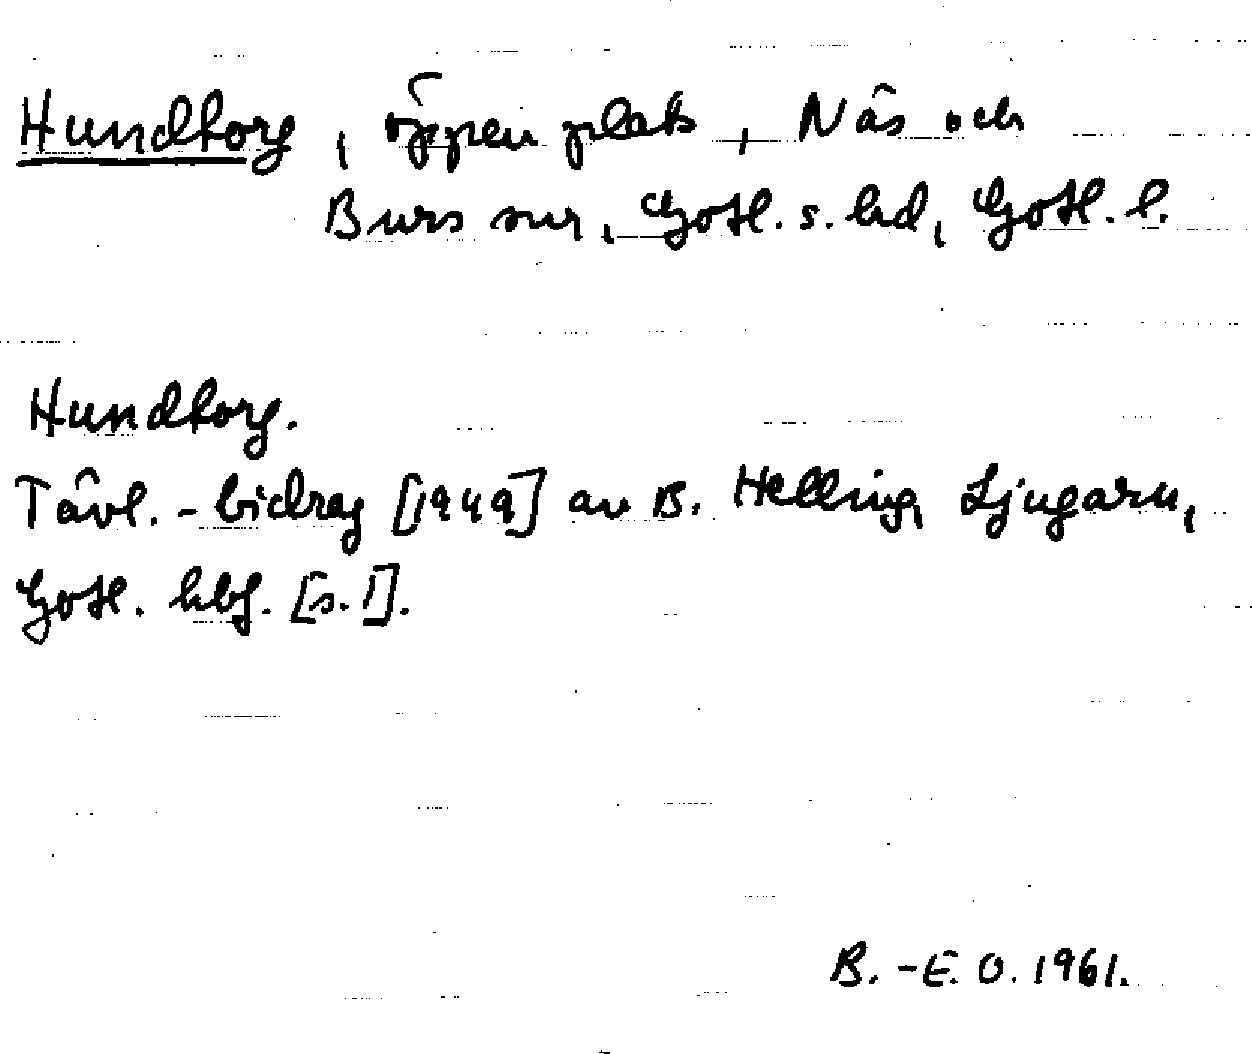 Hundtorg, öppen plats, Näs och
Burs snr, Gotl. s. hd, Gotl. l.
Hundtorg.
Tävl.-bidrag [1949] av B. Helling, Ljugarn,
Gotl. hbf. [s. 1].
B.-E. O. 1961.